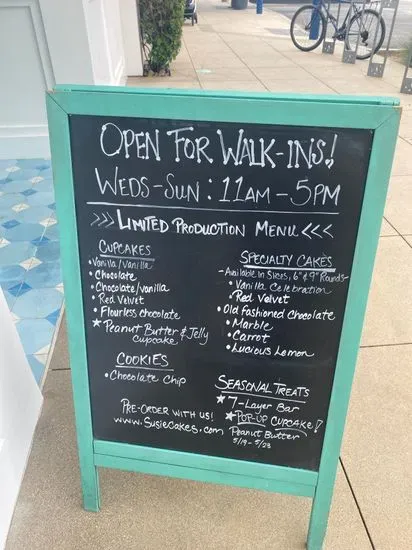 OPEN FOR WALK-INS!
WEDS-SUN: 11AM-5PM
>>> LIMITED PRODUCTION MENU <<<
CUPCAKES
• Vanilla/Vanilla
• Chocolate
• Chocolate/vanilla
• Red Velvet
• Flourless chocolate
★ Peanut Butter & Jelly
cupcake
COOKIES
• Chocolate Chip
PRE-ORDER WITH US!
WWW.SUSIECAKES.COM
SPECIALTY CAKES
- Available In Slices, 6" & 9" Rounds -
• Vanilla Celebration
• Red Velvet
• Old fashioned Chocolate
• Marble
• Carrot
• Luscious Lemon
SEASONAL TREATS
★ 7-Layer Bar
★ POP-UP CUPCAKE!
Peanut Butter
5/19-5/23